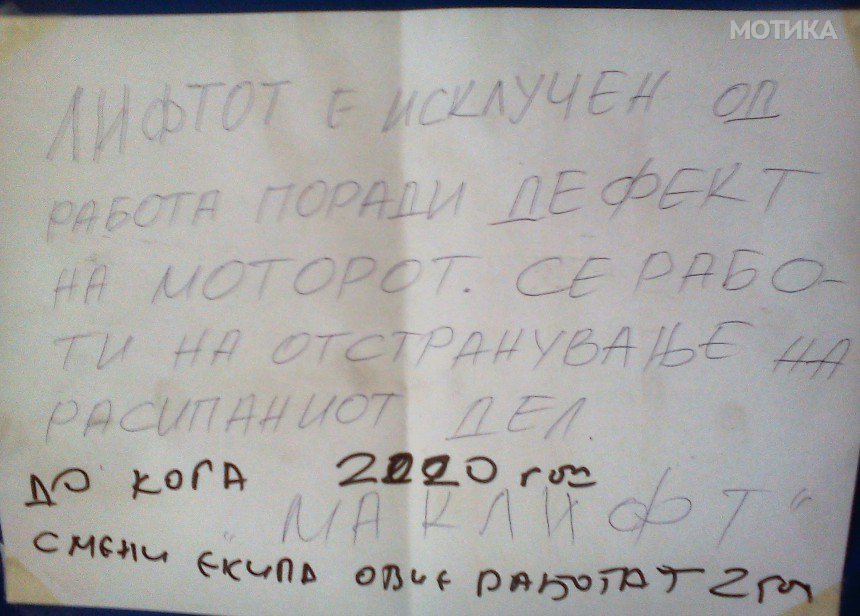 МОТИКА
ЛИФТОТ Е ИСКЛУЧЕН ОД
РАБОТА ПОРАДИ ДЕФЕКТ
НА МОТОРОТ. СЕ РАБО-
ТИ НА ОТСТРАНУВАЊЕ НА
РАСИПАНИОТ ДЕЛ.
ДО КОГА 2020 год
"МАКЛИФТ"
СМЕНИ ЕКИПА ОВИЕ РАБОТАТ 2 год